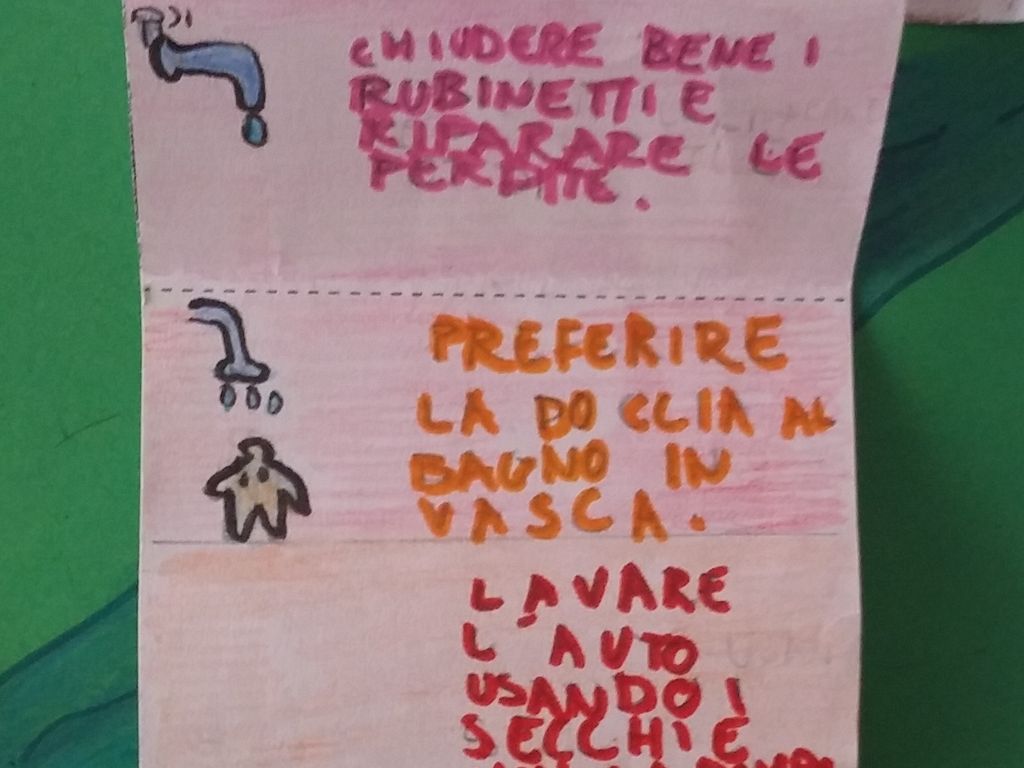 CHIUDERE BENE I
RUBINETTI E
RIPARARE LE
PERDITE.
PREFERIRE
LA DOCCIA AL
BAGNO IN
VASCA.
LAVARE
L'AUTO
USANDO I
SECCHI E